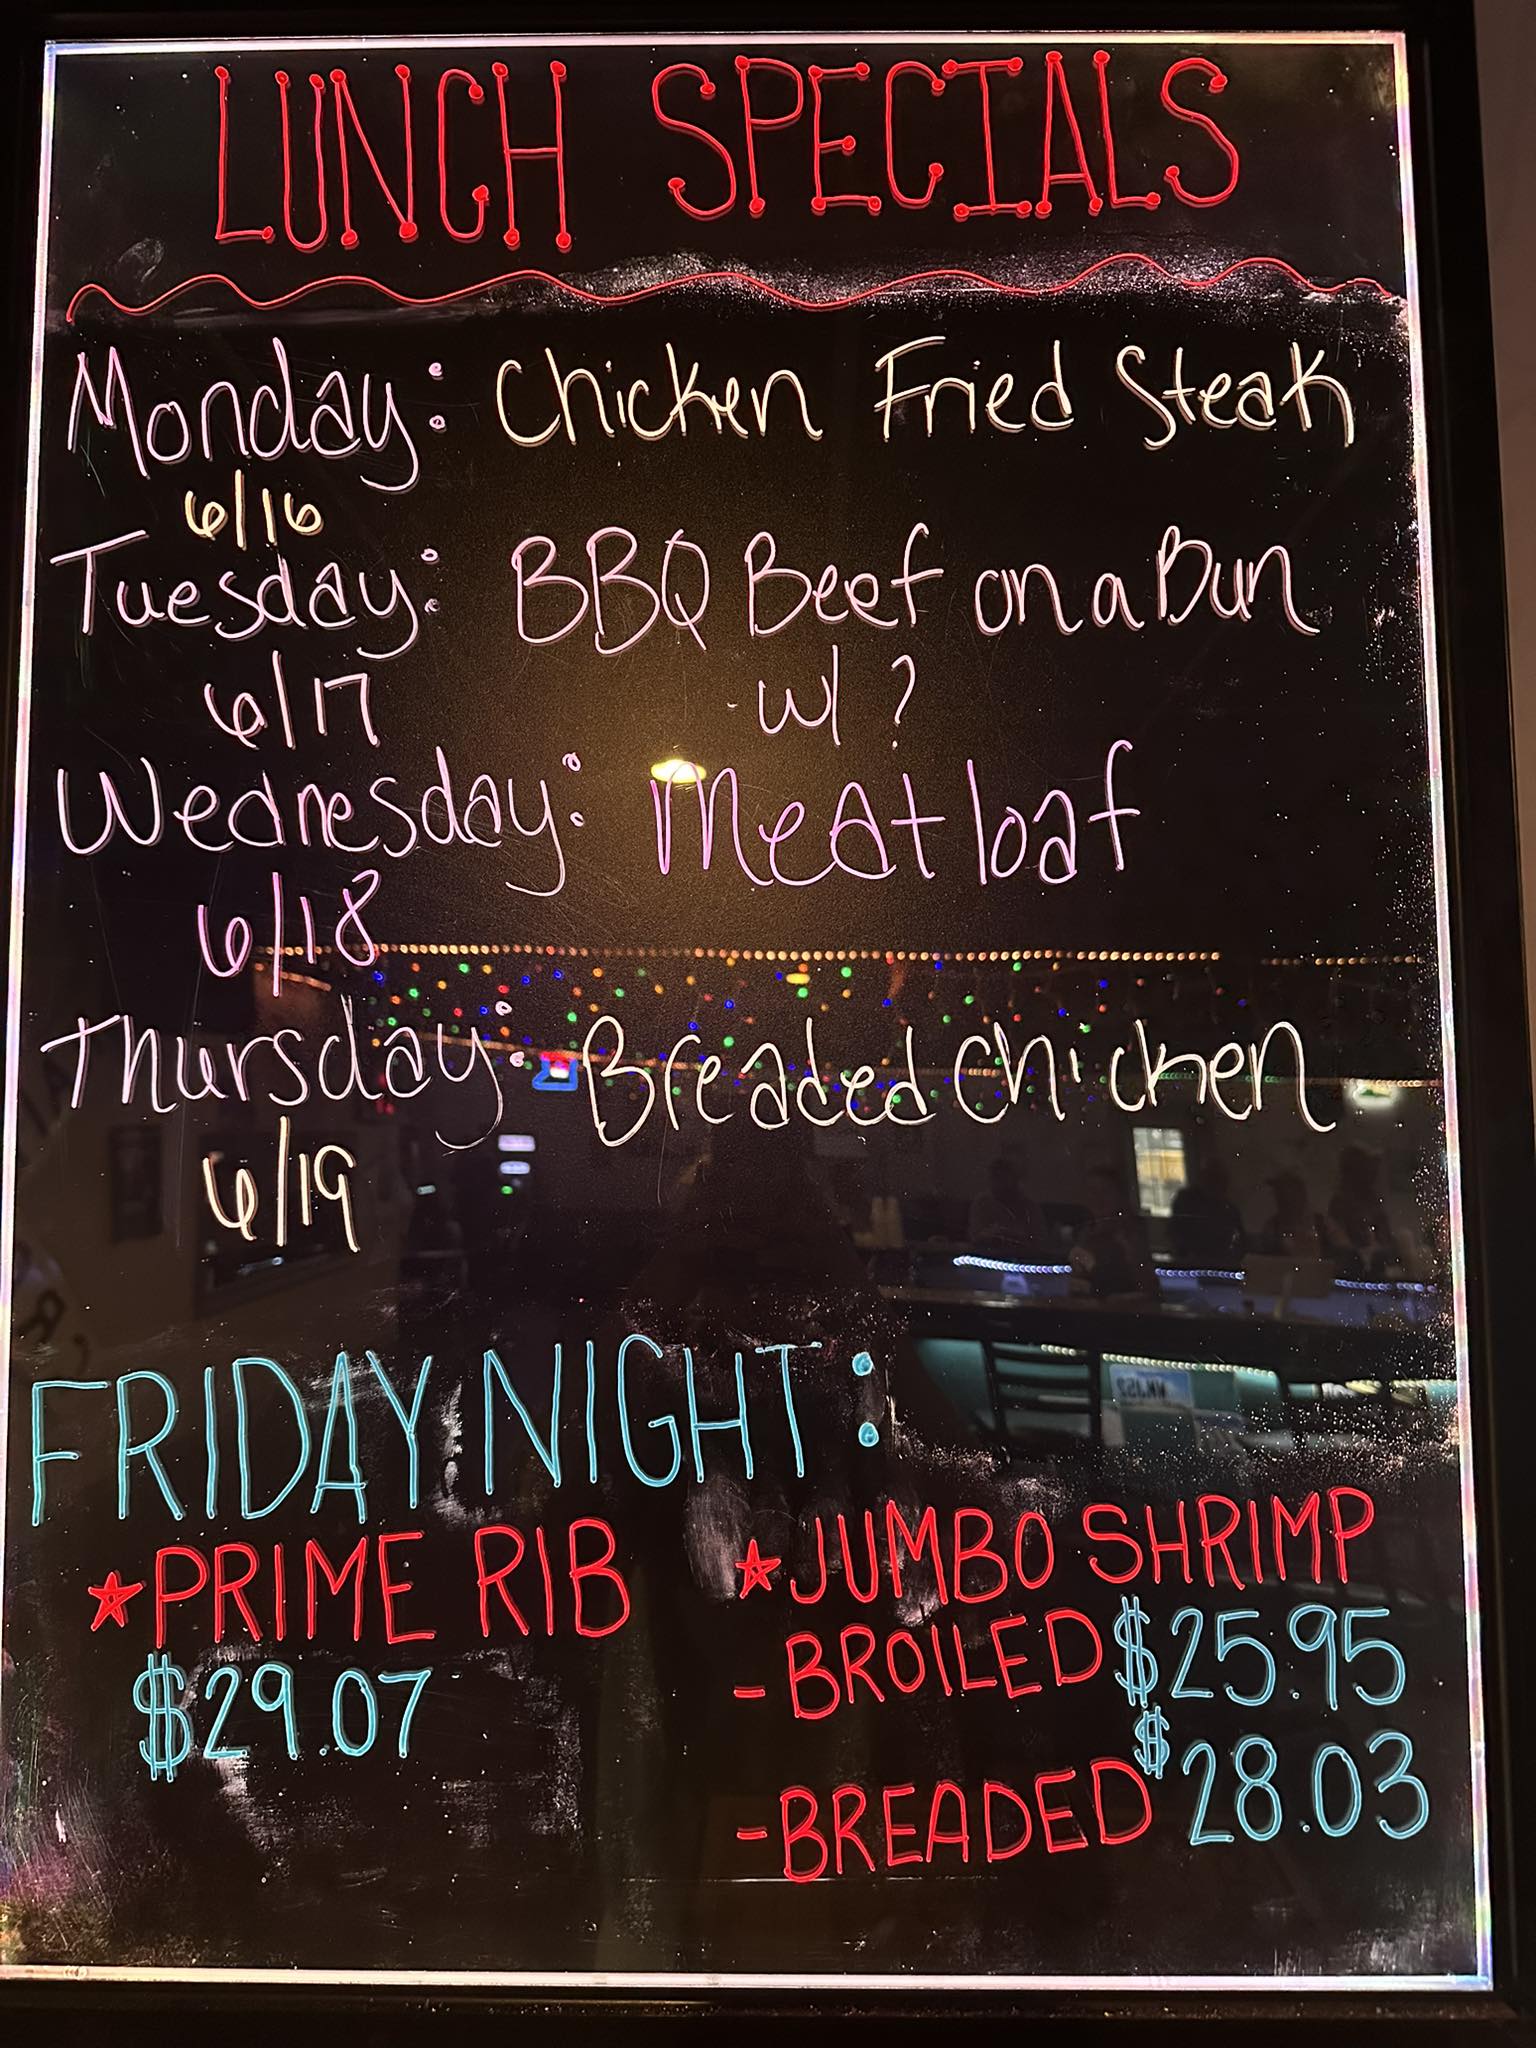 LUNCH SPECIALS
Monday: Chicken Fried Steak
6/16
Tuesday: BBQ Beef on a Bun
6/17 w/ ?
Wednesday: Meatloaf
6/18
Thursday: Breaded Chicken
6/19
FRIDAY NIGHT:
★ PRIME RIB ★ JUMBO SHRIMP
$29.07 - BROILED $25.95
- BREADED $28.03